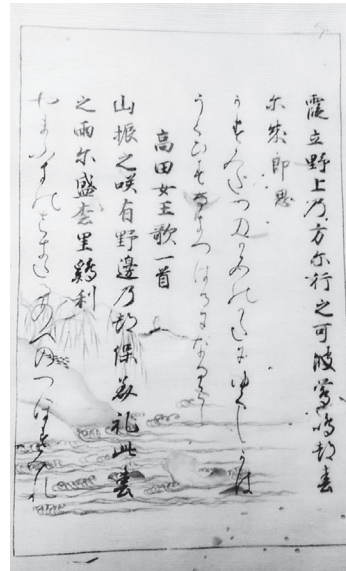 霞立野上乃方尓行之可波鶯鳴都春
尓成郎思
かすみたつのかみのかたにゆきしかは
うくひすなきつはるになるらし
高田女王歌一首
山振之咲有野邊乃都保美礼此春
之雨尓盛奈里鶏利
やまふきのさきたるのへのつほすみれ